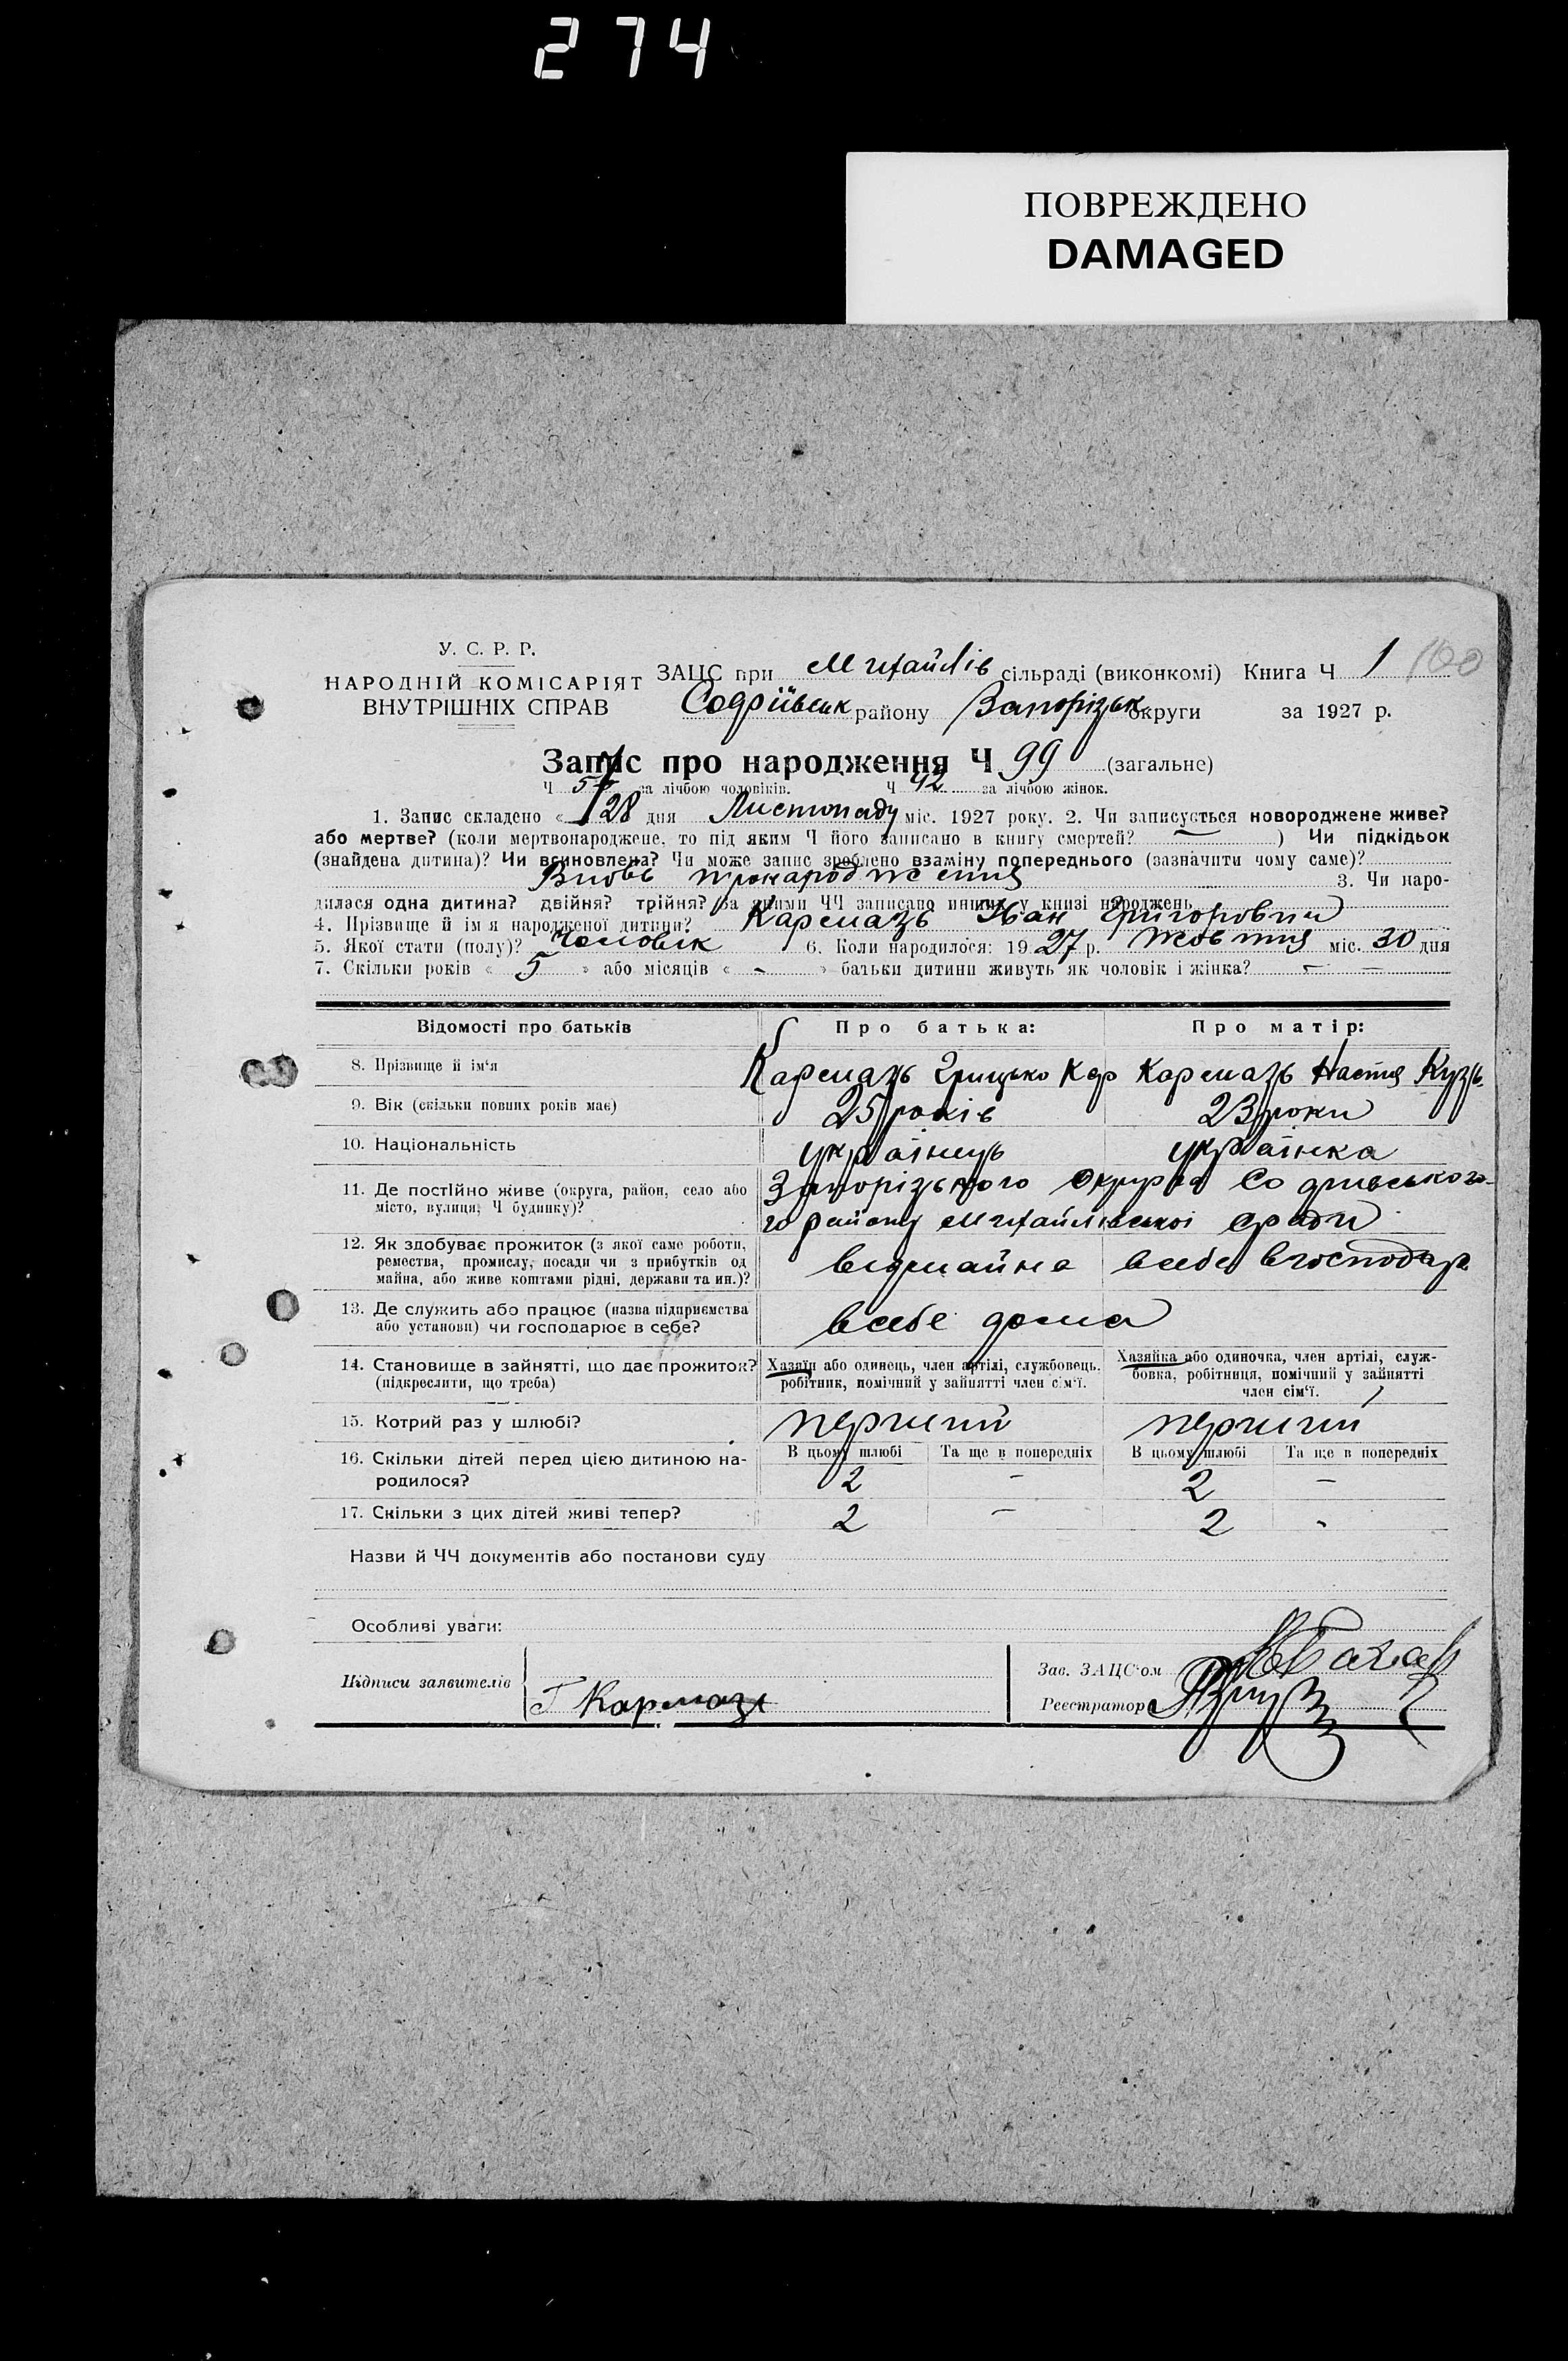 274
ПОВРЕЖДЕНО
DAMAGED
У. С. Р. Р.
НАРОДНІЙ КОМІСАРІЯТ
ВНУТРІШНІХ СПРАВ
ЗАЦС при Михайлів сільраді (виконкомі) Книга Ч 1 100
Софіївськ району Запорізьк округи за 1927 р.
Запис про народження Ч 99 (загальне)
Ч 57 за лічбою чоловіків. Ч 42 за лічбою жінок.
1. Запис складено « 28 дня Листопаду міс. 1927 року. 2. Чи записується новороджене живе?
або мертве? (коли мертвонароджене, то під яким Ч його записано в книгу смертей? — ) Чи підкідьок
(знайдена дитина)? Чи всиновлена? Чи може запис зроблено взаміну попереднього (зазначити чому саме)?
Вновь пронародження 3. Чи наро-
дилася одна дитина? двійня? трійня? За якими ЧЧ записано инших у книзі народжень
4. Прізвище й ім'я народженої дитини? Кармазь Іван Григорович
5. Якої стати (полу)? Чоловік 6. Коли народилося: 1927 р. Жовтня міс. 30 дня
7. Скільки років « 5 » або місяців « - » батьки дитини живуть як чоловік і жінка? — —
Відомості про батьків Про батька: Про матір:
8. Прізвище й ім'я Кармазь Грицько Кар Кармазь Настя Кузь
9. Вік (скільки повних років має) 25 років 23 роки
10. Національність українець українка
11. Де постійно живе (округа, район, село або
місто, вулиця, Ч будинку)?
Запорізького Округа
го району Михайлівської
12. Як здобуває прожиток (з якої саме роботи,
ремества, промислу, посади чи з прибутків од
майна, або живе коштами рідні, держави та ин.)?
відмайна всебе вгосподар
13. Де служить або працює (назва підприємства
або установи) чи господарює в себе?
всебе дома
14. Становище в зайнятті, що дає прожиток?
(підкреслити, що треба)
Хазяїн або одинець, член артілі, службовець.
робітник, помічний у зайнятті член сім'ї.
Хазяйка або одиночка, член артілі, служ-
бовка, робітниця, помічний у зайнятті
член сім'ї.
15. Котрий раз у шлюбі? перший перший
16. Скільки дітей перед цією дитиною на-
родилося?
В цьому шлюбі Та ще в попередніх В цьому шлюбі Та ще в попередніх
2 - 2 -
17. Скільки з цих дітей живі тепер? 2 - 2 -
Назви й ЧЧ документів або постанови суду
Особливі уваги:
Підписи заявителів Г Кармазь
Зав. ЗАЦС'ом
Реєстратор